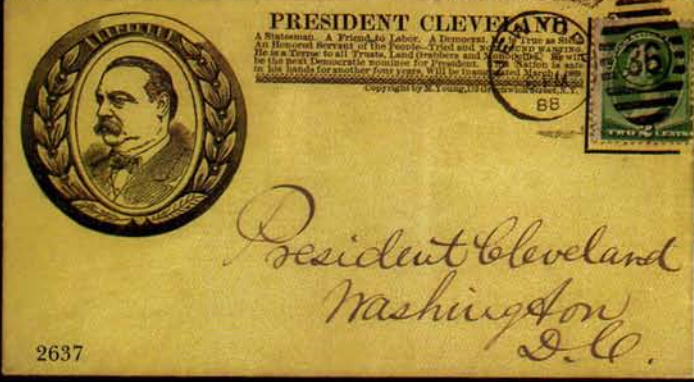 PRESIDENT CLEVELAND
A Statesman. A Friend to Labor. A Democrat. True as Steel
An Honored Servant of the People—Tried and NOT FOUND WANTING.
He is a Terror to all Trusts, Land Grabbers and Monopolies. He will
be the next Democratic nominee for President. The Nation is safe
in his hands for another four years. Will be Inaugurated March
Copyright by M. Young, Greenwich Street, N.Y.
NEW
88
36
TWO 2 CENTS
President Cleveland
Washington
D.C.
2637